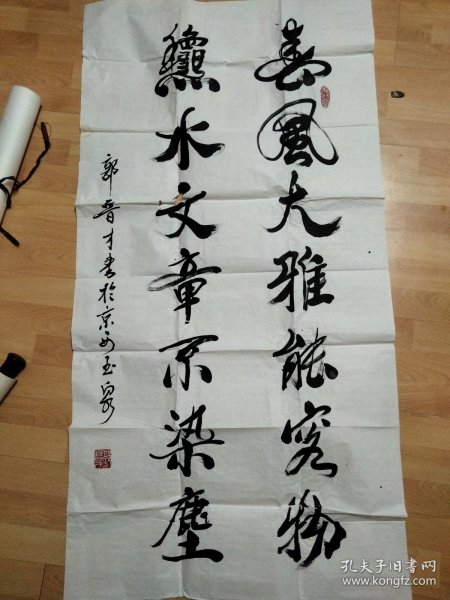 春風大雅能容物
龝水文章不染塵
郭晉才書於京西玉泉
孔夫子旧书网
www.kongfz.com